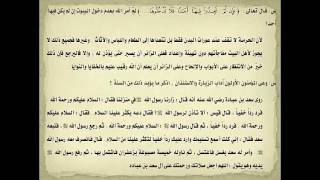 س قال تعالى ﴿ فإن لم تجدوا فيها أحدا فلا تدخلوها ﴾ ، لم أمر الله بعدم دخول البيوت إن لم يكن فيها أحد؟
لأن الحرمة لا تقف عند عورات البدن فقط بل تتعداها إلى الطعام واللباس والأثاث وغيرها فجميع ذلك لا
يجوز لأهل البيت مفاجأتهم دون تهيئة وإعداد فعلى الزائر أن يصبر حتى يؤذن له ، وإلا فالرجوع فإن ذلك
خير من الانتظار على الأبواب والإلحاح وعلى الزائر أن يعلم أن الله رقيب عليم بالخفايا والنوايا
س وعى المؤمنون الأولون آداب الزيارة والاستئذان . اذكر ما يؤيد ذلك من السنة ؟
روى سعد بن عبادة رضي الله عنه أنه قال : زارنا رسول الله ﷺ في منزلنا فقال : السلام عليكم ورحمة الله
فرد سعد رداً خفياً ، قال قيس : ألا تأذن لرسول الله ﷺ ؟ فقال دعه يكثر علينا السلام . فقال ﷺ السلام عليكم ورحمة
الله فرد رداً خفياً ، ثم قال رسول الله ﷺ : السلام عليكم ورحمة الله ، ثم رجع رسول الله ﷺ
سعد فقال : إني كنت أسمع تسليمك وأرد عليك رداً خفياً لتكثر علينا من السلام ، فانصرف معه رسول الله
ﷺ ، وأمر له سعد بغسل فاغتسل ، ثم ناوله خميصة مصبوغة بزعفران فاشتمل بها ، ثم رفع رسول الله ﷺ
يديه وهو يقول : اللهم اجعل صلاتك ورحمتك على آل سعد بن عبادة